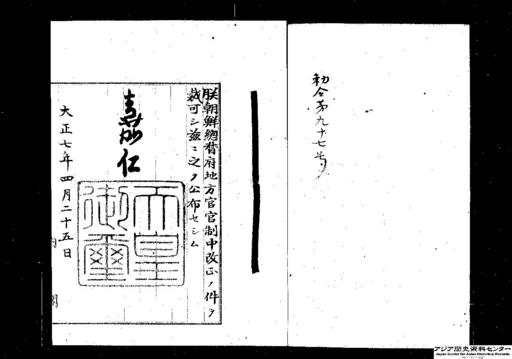 勅令第九十七号
朕朝鮮總督府地方官官制中改正ノ件ヲ
裁可シ茲ニ之ヲ公布セシム
嘉仁
天皇御璽
大正七年四月二十五日
内閣
アジア歴史資料センター
Japan Center for Asian Historical Records